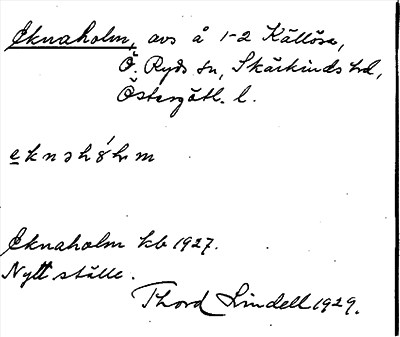 Eknaholm, avs å 1-2 Källösa,
Ö. Ryds sn, Skärkinds hd,
Östergötl. l.
eknahólm
Eknaholm kb 1927.
Nytt ställe.
Thord Lindell 1929.